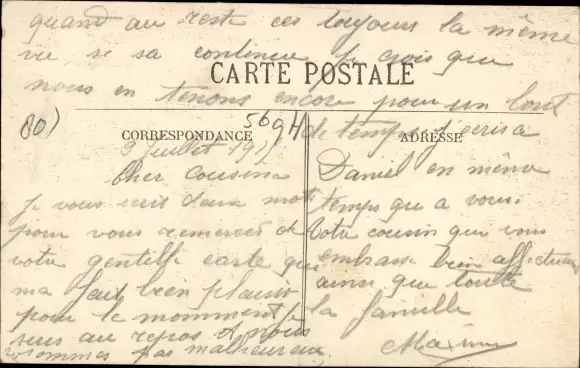 quand au reste ces toujours la même
vie si sa continue je crois que
nous en tenons encore pour un bout
CARTE POSTALE
80)
5694
de temps j'écris à
CORRESPONDANCE
ADRESSE
9 Juillet 191
Cher Cousins
Je vous ecris deux mots
pour vous remercier de
votre gentille carte qui
ma fait bien plaisir
pour le momment je
suis au repos et nous
ne sommes pas malheureux
Daniel en même
temps qu'a vous.
Votre cousin qui vous
embrasse bien affectueu
ainsi que toute
la famille
Maxime